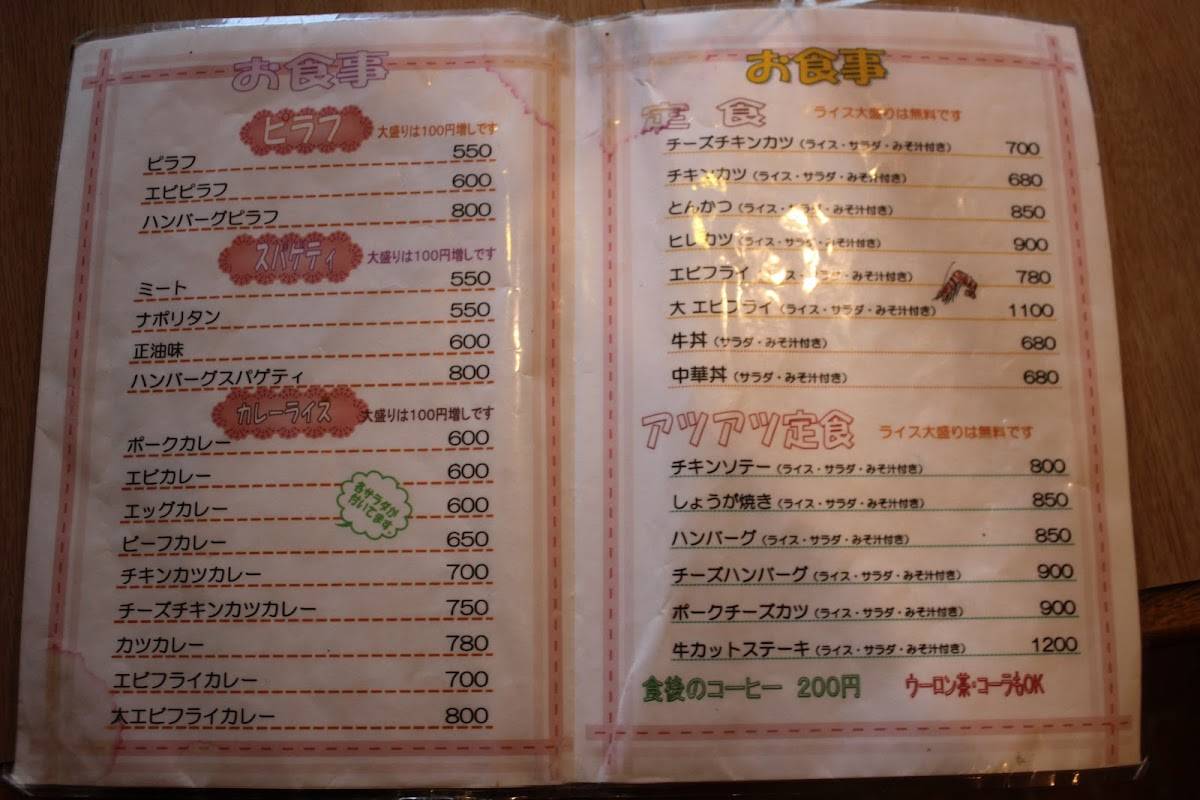 お食事
ピラフ 大盛りは100円増しです
ピラフ 550
エビピラフ 600
ハンバーグピラフ 800
スパゲティ 大盛りは100円増しです
ミート 550
ナポリタン 550
正油味 600
ハンバーグスパゲティ 800
カレーライス 大盛りは100円増しです
ポークカレー 600
エビカレー 600
エッグカレー 600
ビーフカレー 650
チキンカツカレー 700
チーズチキンカツカレー 750
カツカレー 780
エビフライカレー 700
大エビフライカレー 800
各サラダが
付いてます。
お食事
定食 ライス大盛りは無料です
チーズチキンカツ (ライス・サラダ・みそ汁付き) 700
チキンカツ (ライス・サラダ・みそ汁付き) 680
とんかつ (ライス・サラダ・みそ汁付き) 850
ヒレカツ (ライス・サラダ・みそ汁付き) 900
エビフライ (ライス・サラダ・みそ汁付き) 780
大 エビフライ (ライス・サラダ・みそ汁付き) 1100
牛丼 (サラダ・みそ汁付き) 680
中華丼 (サラダ・みそ汁付き) 680
アツアツ定食 ライス大盛りは無料です
チキンソテー (ライス・サラダ・みそ汁付き) 800
しょうが焼き (ライス・サラダ・みそ汁付き) 850
ハンバーグ (ライス・サラダ・みそ汁付き) 850
チーズハンバーグ (ライス・サラダ・みそ汁付き) 900
ポークチーズカツ (ライス・サラダ・みそ汁付き) 900
牛カットステーキ (ライス・サラダ・みそ汁付き) 1200
食後のコーヒー 200円 ウーロン茶・コーラもOK